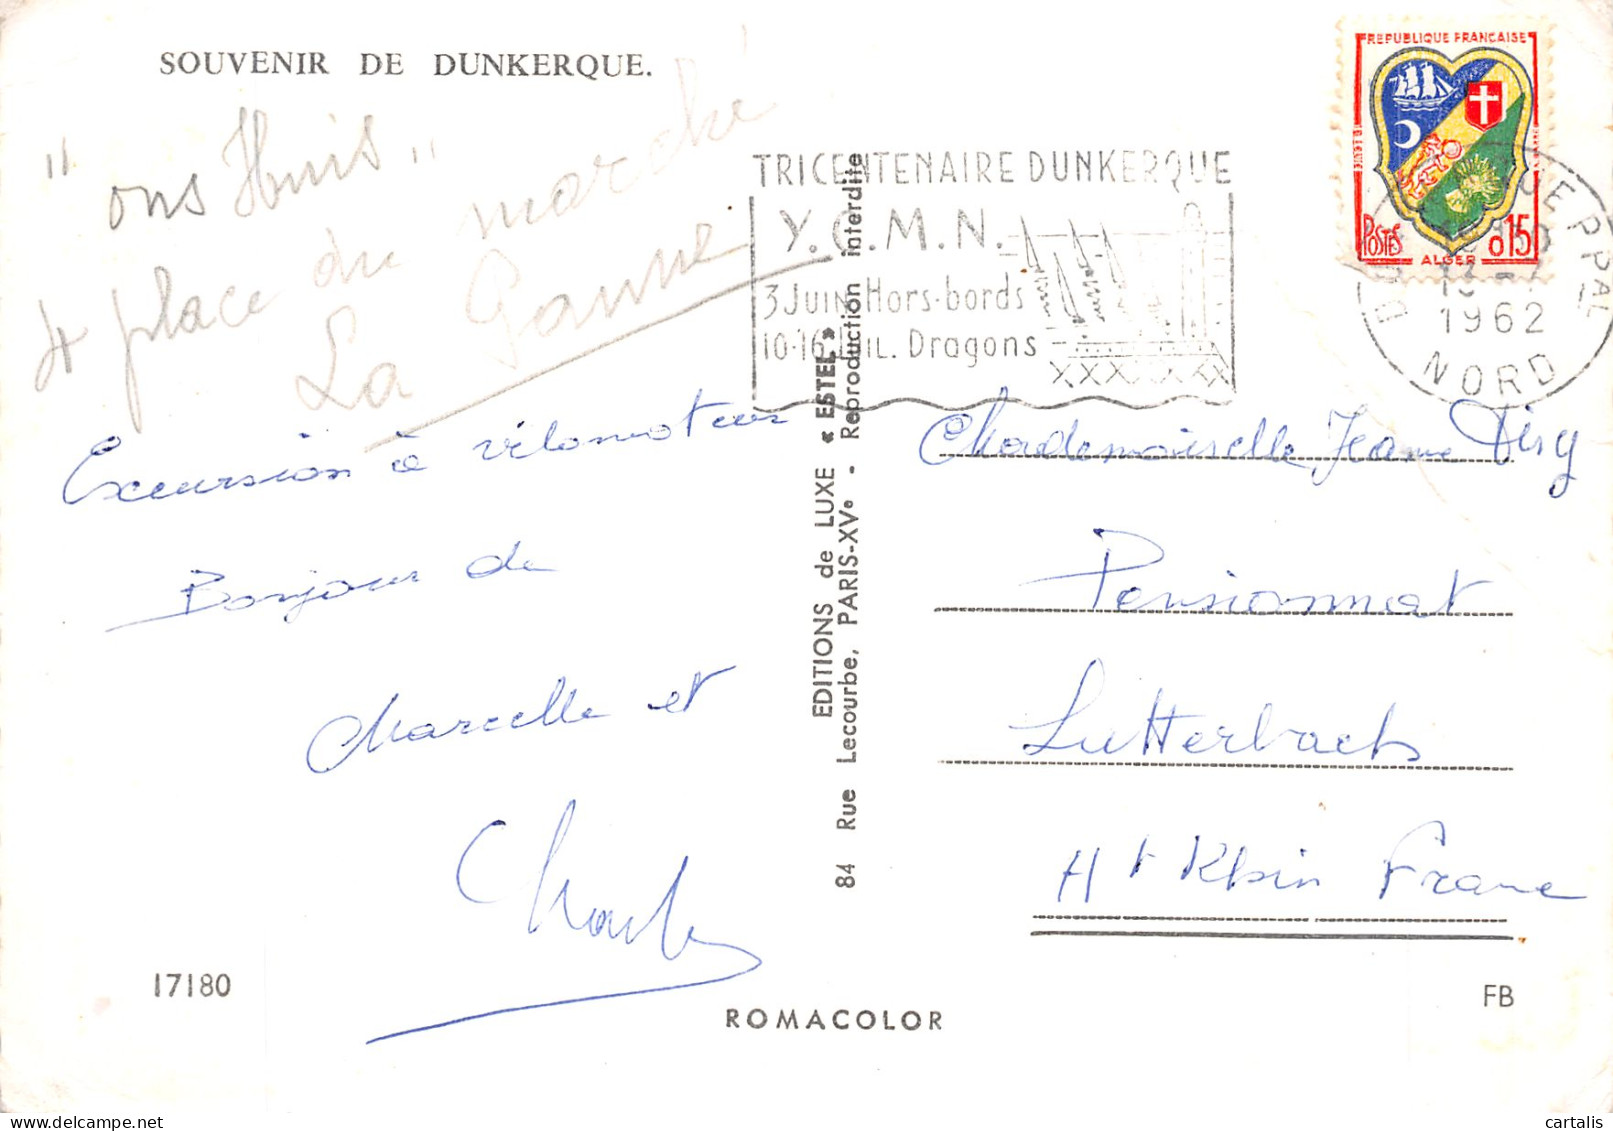 SOUVENIR DE DUNKERQUE.
"ons Huis"
4 place du marché
La Panne
Excursion à vélomoteur
Bonjour de
Marcelle et
Charles
17180
ROMACOLOR
EDITIONS de LUXE « ESTEL »
84 Rue Lecourbe, PARIS-XVe - Reproduction interdite
TRICENTENAIRE DUNKERQUE
Y.C.M.N.
3 JUIN Hors-bords
10-16 JUIL. Dragons
REPUBLIQUE FRANÇAISE
POSTES
ALGER
0,15
PPAL
1962
NORD
Mademoiselle Jeanne
Pensionnat
Lutterbach
Ht Rhin France
FB
cartalis